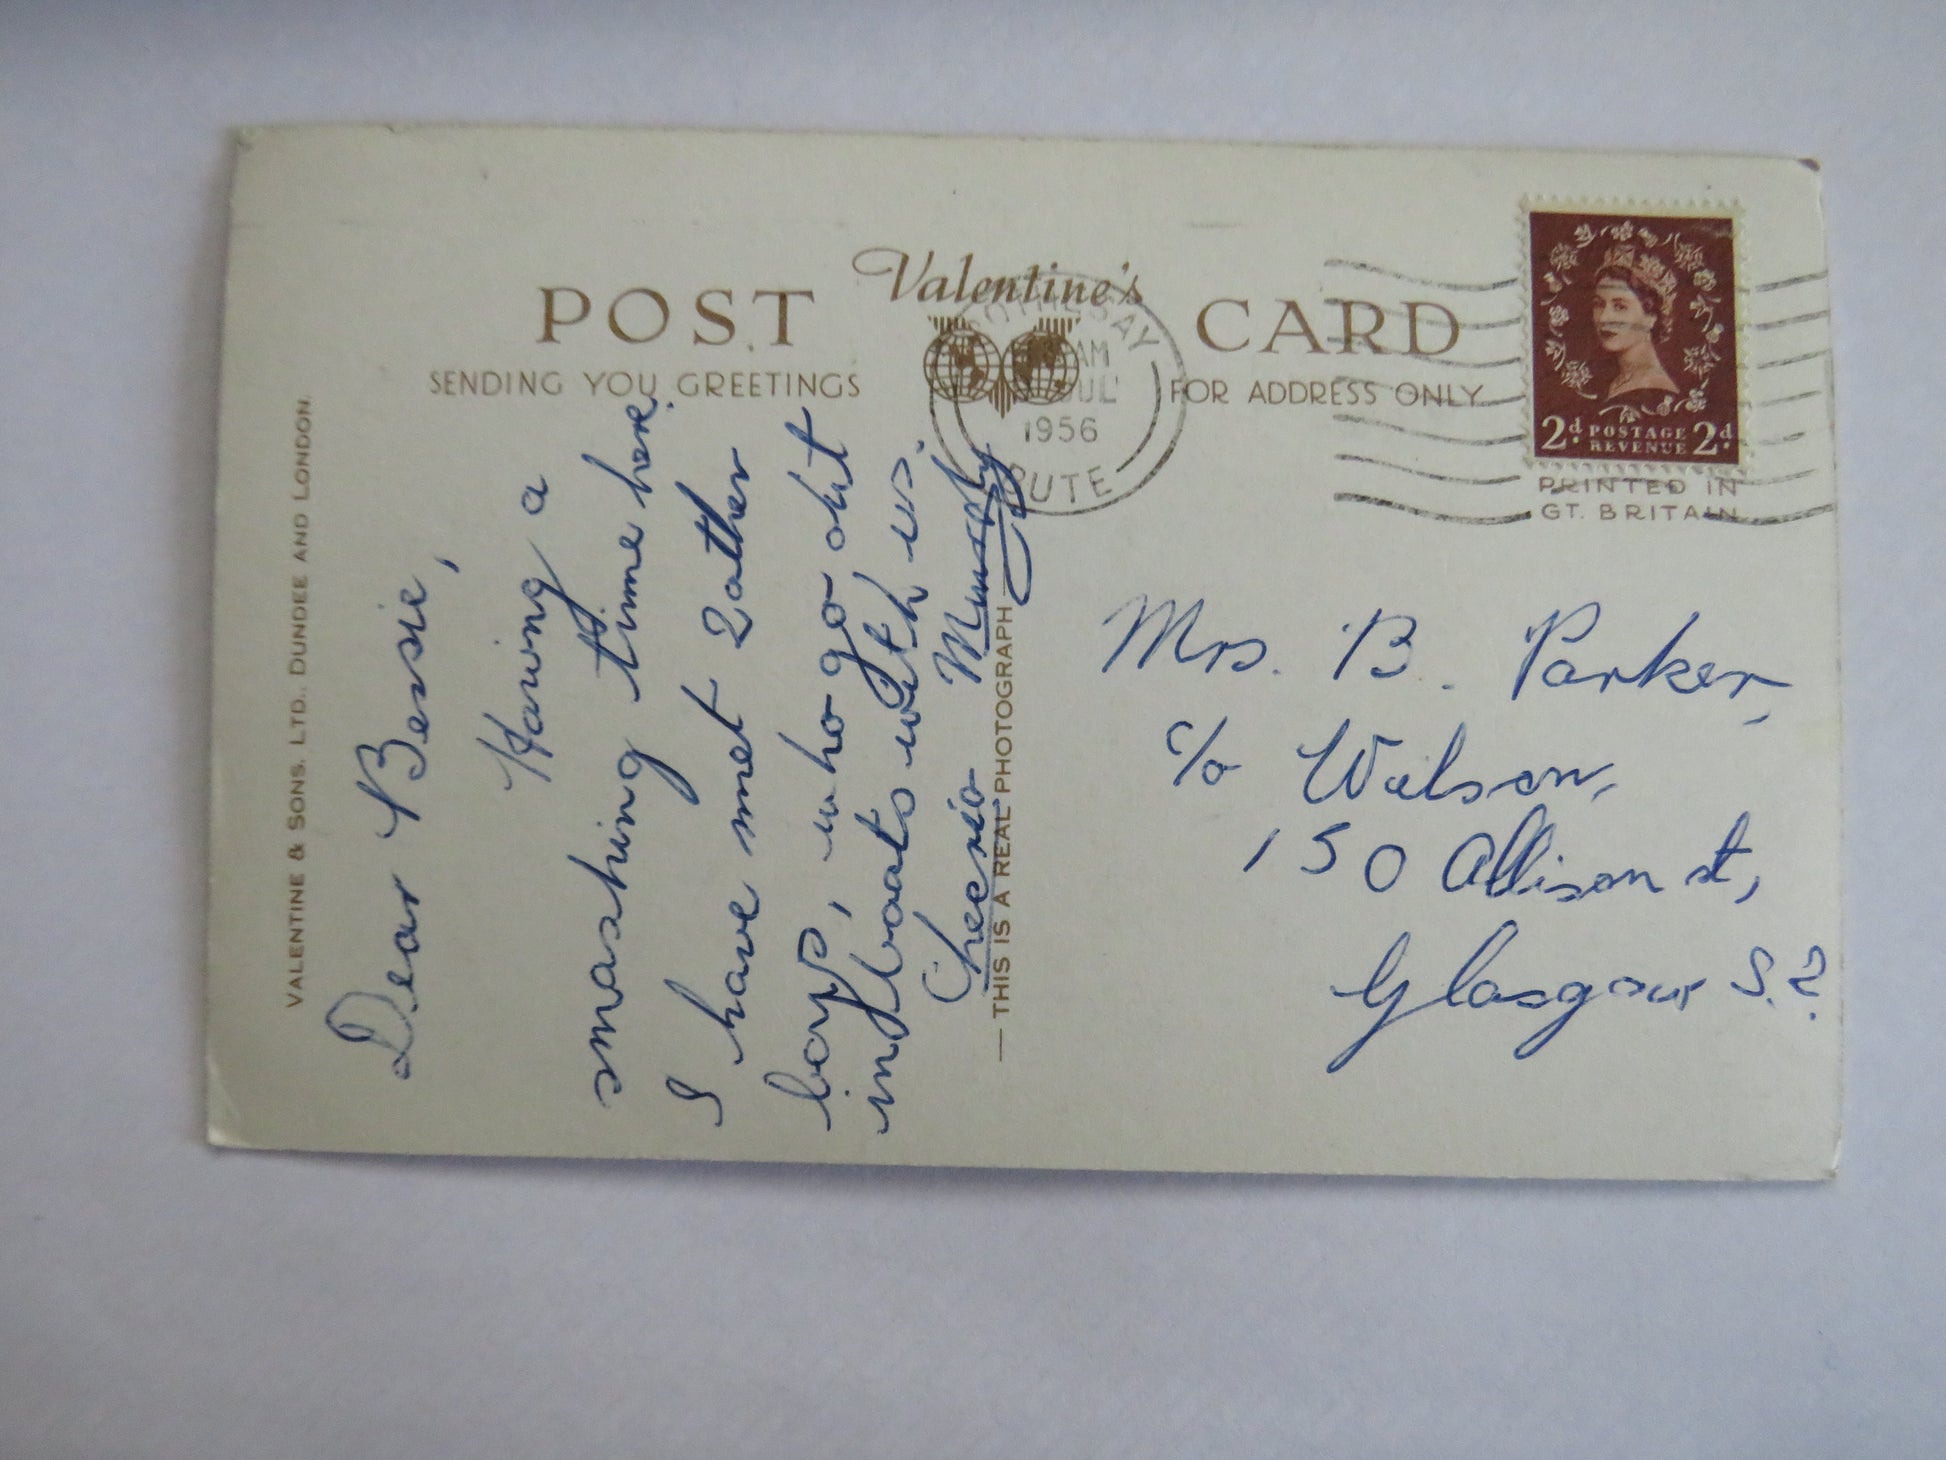 VALENTINE & SONS. LTD., DUNDEE AND LONDON.
POST
Valentine's
CARD
SENDING YOU GREETINGS
FOR ADDRESS ONLY
ROTHESAY
AM
JUL
1956
BUTE
2d. POSTAGE REVENUE 2d.
PRINTED IN
GT. BRITAIN
Dear Bessie,
Having a
smashing time here.
I have met 2 other
boys, who go out
in boats with us.
Cheerio
— THIS IS A REAL PHOTOGRAPH —
Mrs. B. Parker,
c/o Wilson,
150 Allison st,
Glasgow S.2.